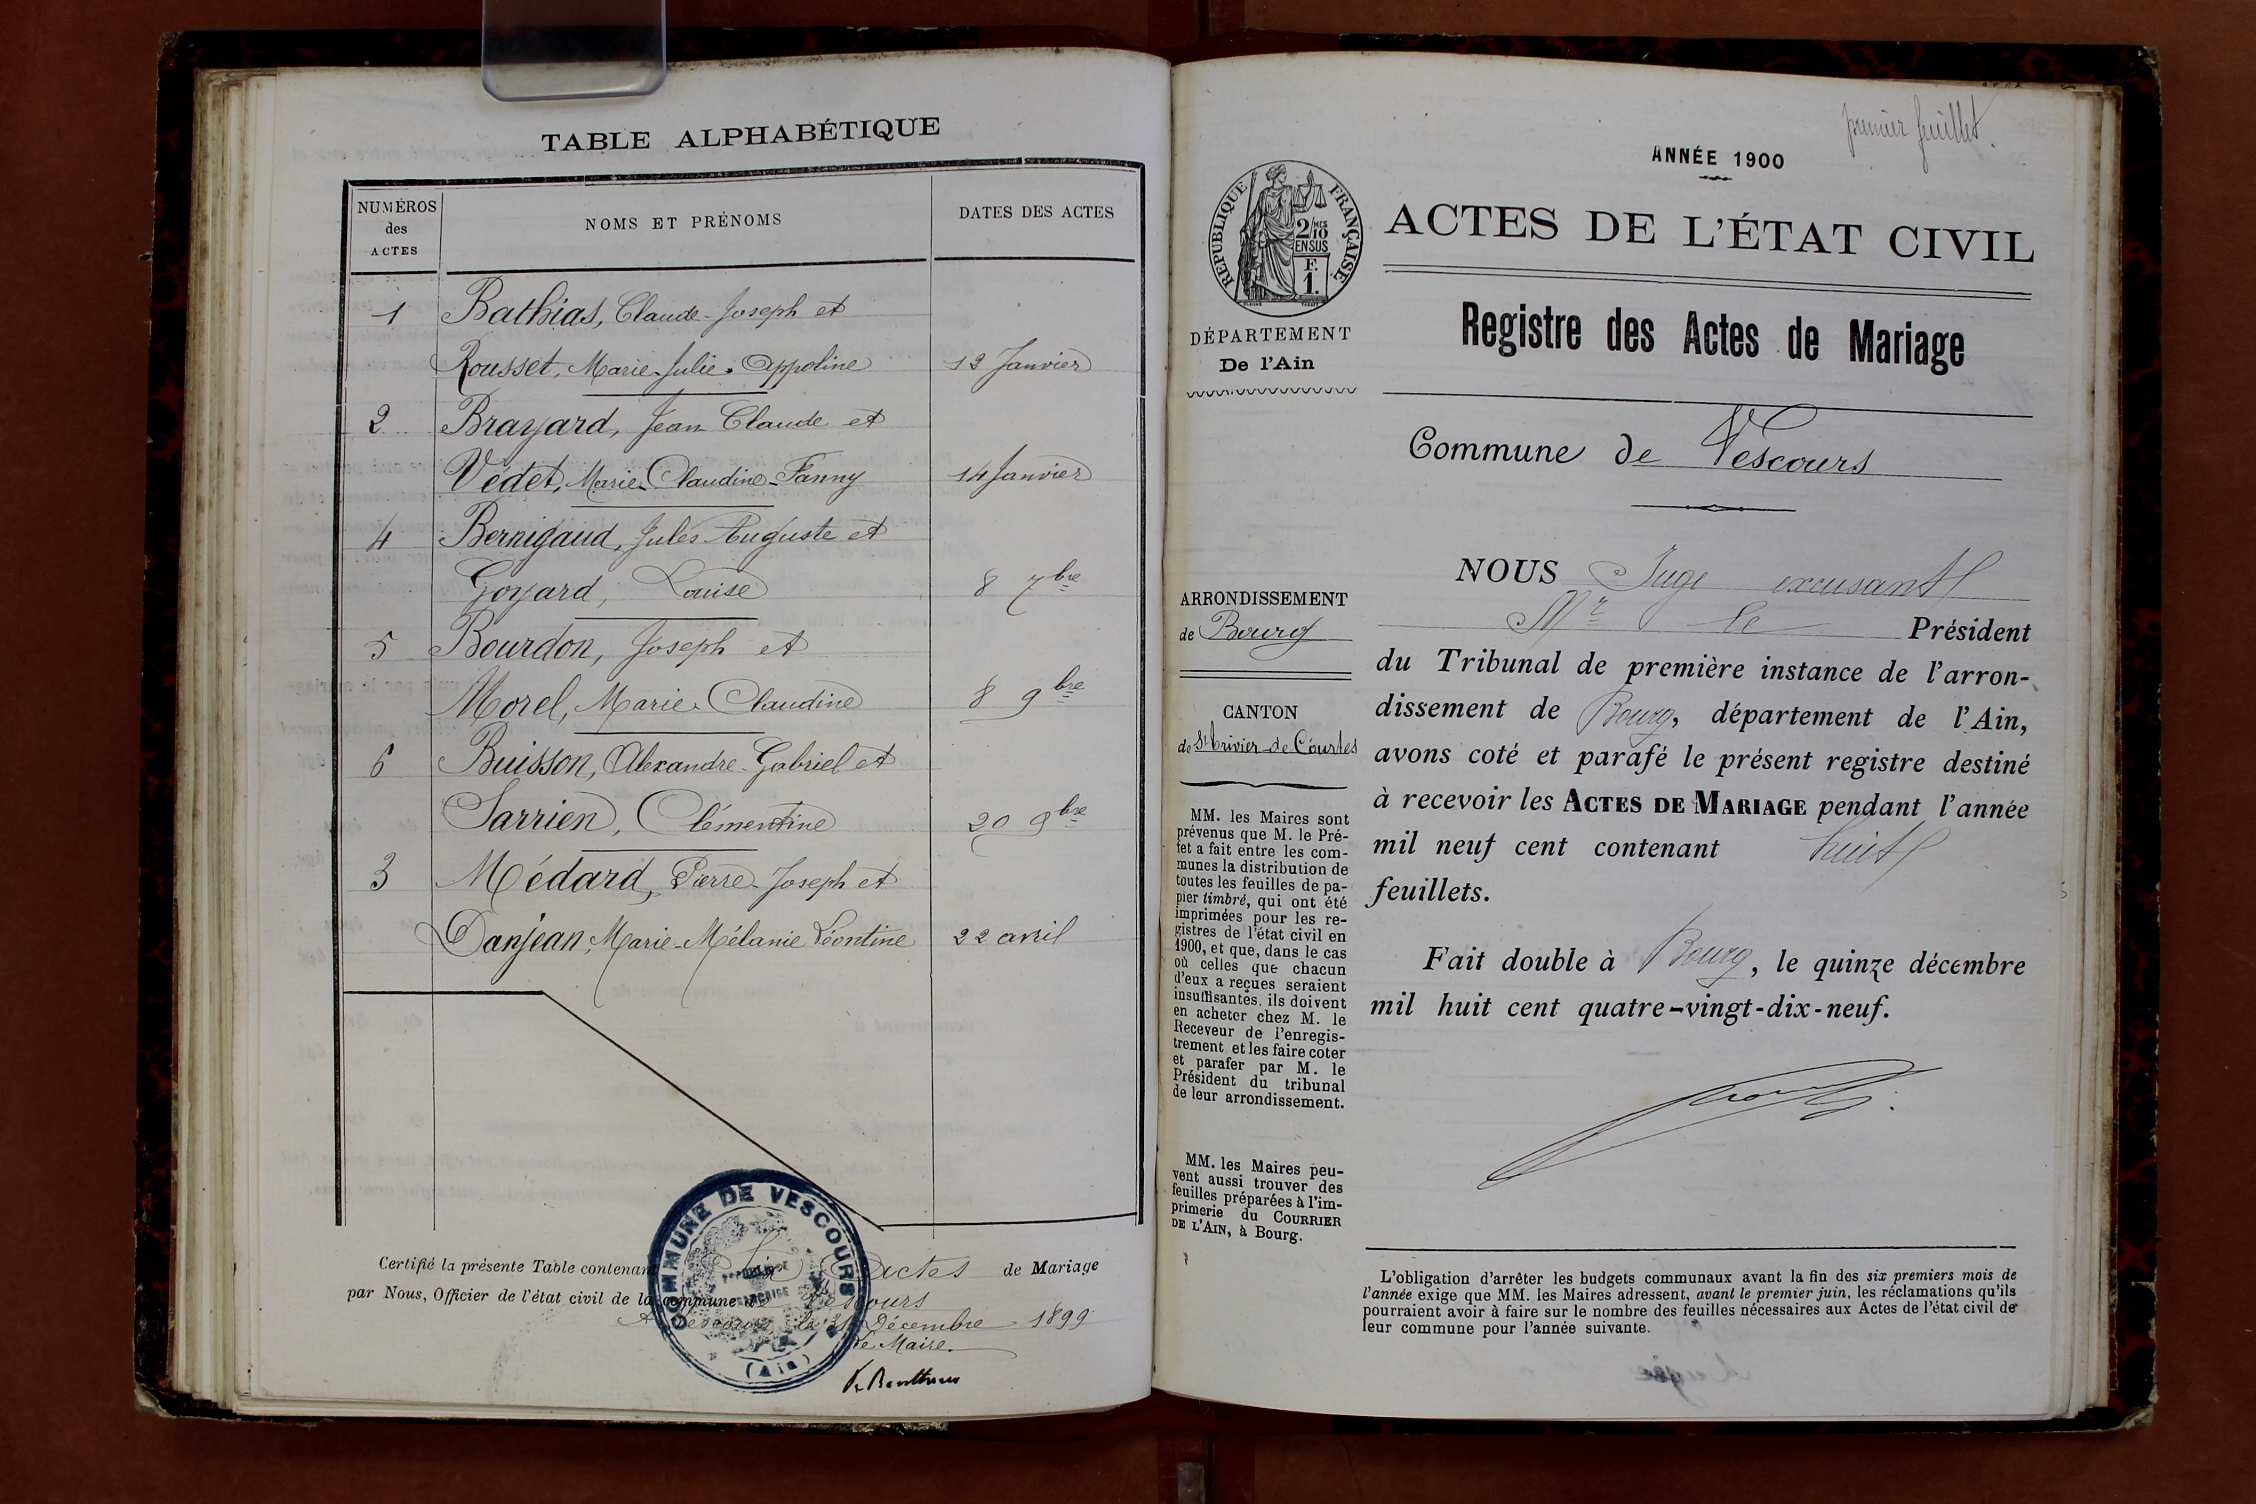 TABLE ALPHABÉTIQUE
NUMÉROS
des
ACTES
NOMS ET PRÉNOMS
DATES DES ACTES
1 Bathias, Claude-Joseph et
Rousset, Marie-Julie-Appoline 12 Janvier
2 Brayard, Jean Claude et
Védet, Marie-Claudine-Fanny 14 Janvier
4 Bernigaud, Jules Auguste et
Goyard, Louise 8 7bre
5 Bourdon, Joseph et
Morel, Marie-Claudine 8 9bre
6 Buisson, Alexandre-Gabriel et
Sarrien, Clémentine 20 9bre
3 Médard, Pierre-Joseph et
Danjean, Marie-Mélanie Léontine 22 avril
Certifié la présente Table contenant Six Actes de Mariage
par Nous, Officier de l'état civil de la commune de Vescours
A Vescours le 31 Décembre 1899
Le Maire.
COMMUNE DE VESCOURS
RÉPUBLIQUE
FRANÇAISE
(Ain)
premier feuillet.
ANNÉE 1900
RÉPUBLIQUE FRANÇAISE
2/10 MES
EN SUS
F.
1.
ACTES DE L'ÉTAT CIVIL
Registre des Actes de Mariage
DÉPARTEMENT
De l'Ain
Commune de Vescours
ARRONDISSEMENT
de Bourg
CANTON
de St Trivier-de-Courtes
MM. les Maires sont
prévenus que M. le Pré-
fet a fait entre les com-
munes la distribution de
toutes les feuilles de pa-
pier timbré, qui ont été
imprimées pour les re-
gistres de l'état civil en
1900, et que, dans le cas
où celles que chacun
d'eux a reçues seraient
insuffisantes, ils doivent
en acheter chez M. le
Receveur de l'enregis-
trement et les faire coter
et parafer par M. le
Président du tribunal
de leur arrondissement.
MM. les Maires peu-
vent aussi trouver des
feuilles préparées à l'im-
primerie du COURRIER
DE L'AIN, à Bourg.
NOUS Juge excusant
Mr le Président
du Tribunal de première instance de l'arron-
dissement de Bourg, département de l'Ain,
avons coté et parafé le présent registre destiné
à recevoir les ACTES DE MARIAGE pendant l'année
mil neuf cent contenant huit
feuillets.
Fait double à Bourg, le quinze décembre
mil huit cent quatre-vingt-dix-neuf.
L'obligation d'arrêter les budgets communaux avant la fin des six premiers mois de
l'année exige que MM. les Maires adressent, avant le premier juin, les réclamations qu'ils
pourraient avoir à faire sur le nombre des feuilles nécessaires aux Actes de l'état civil de
leur commune pour l'année suivante.